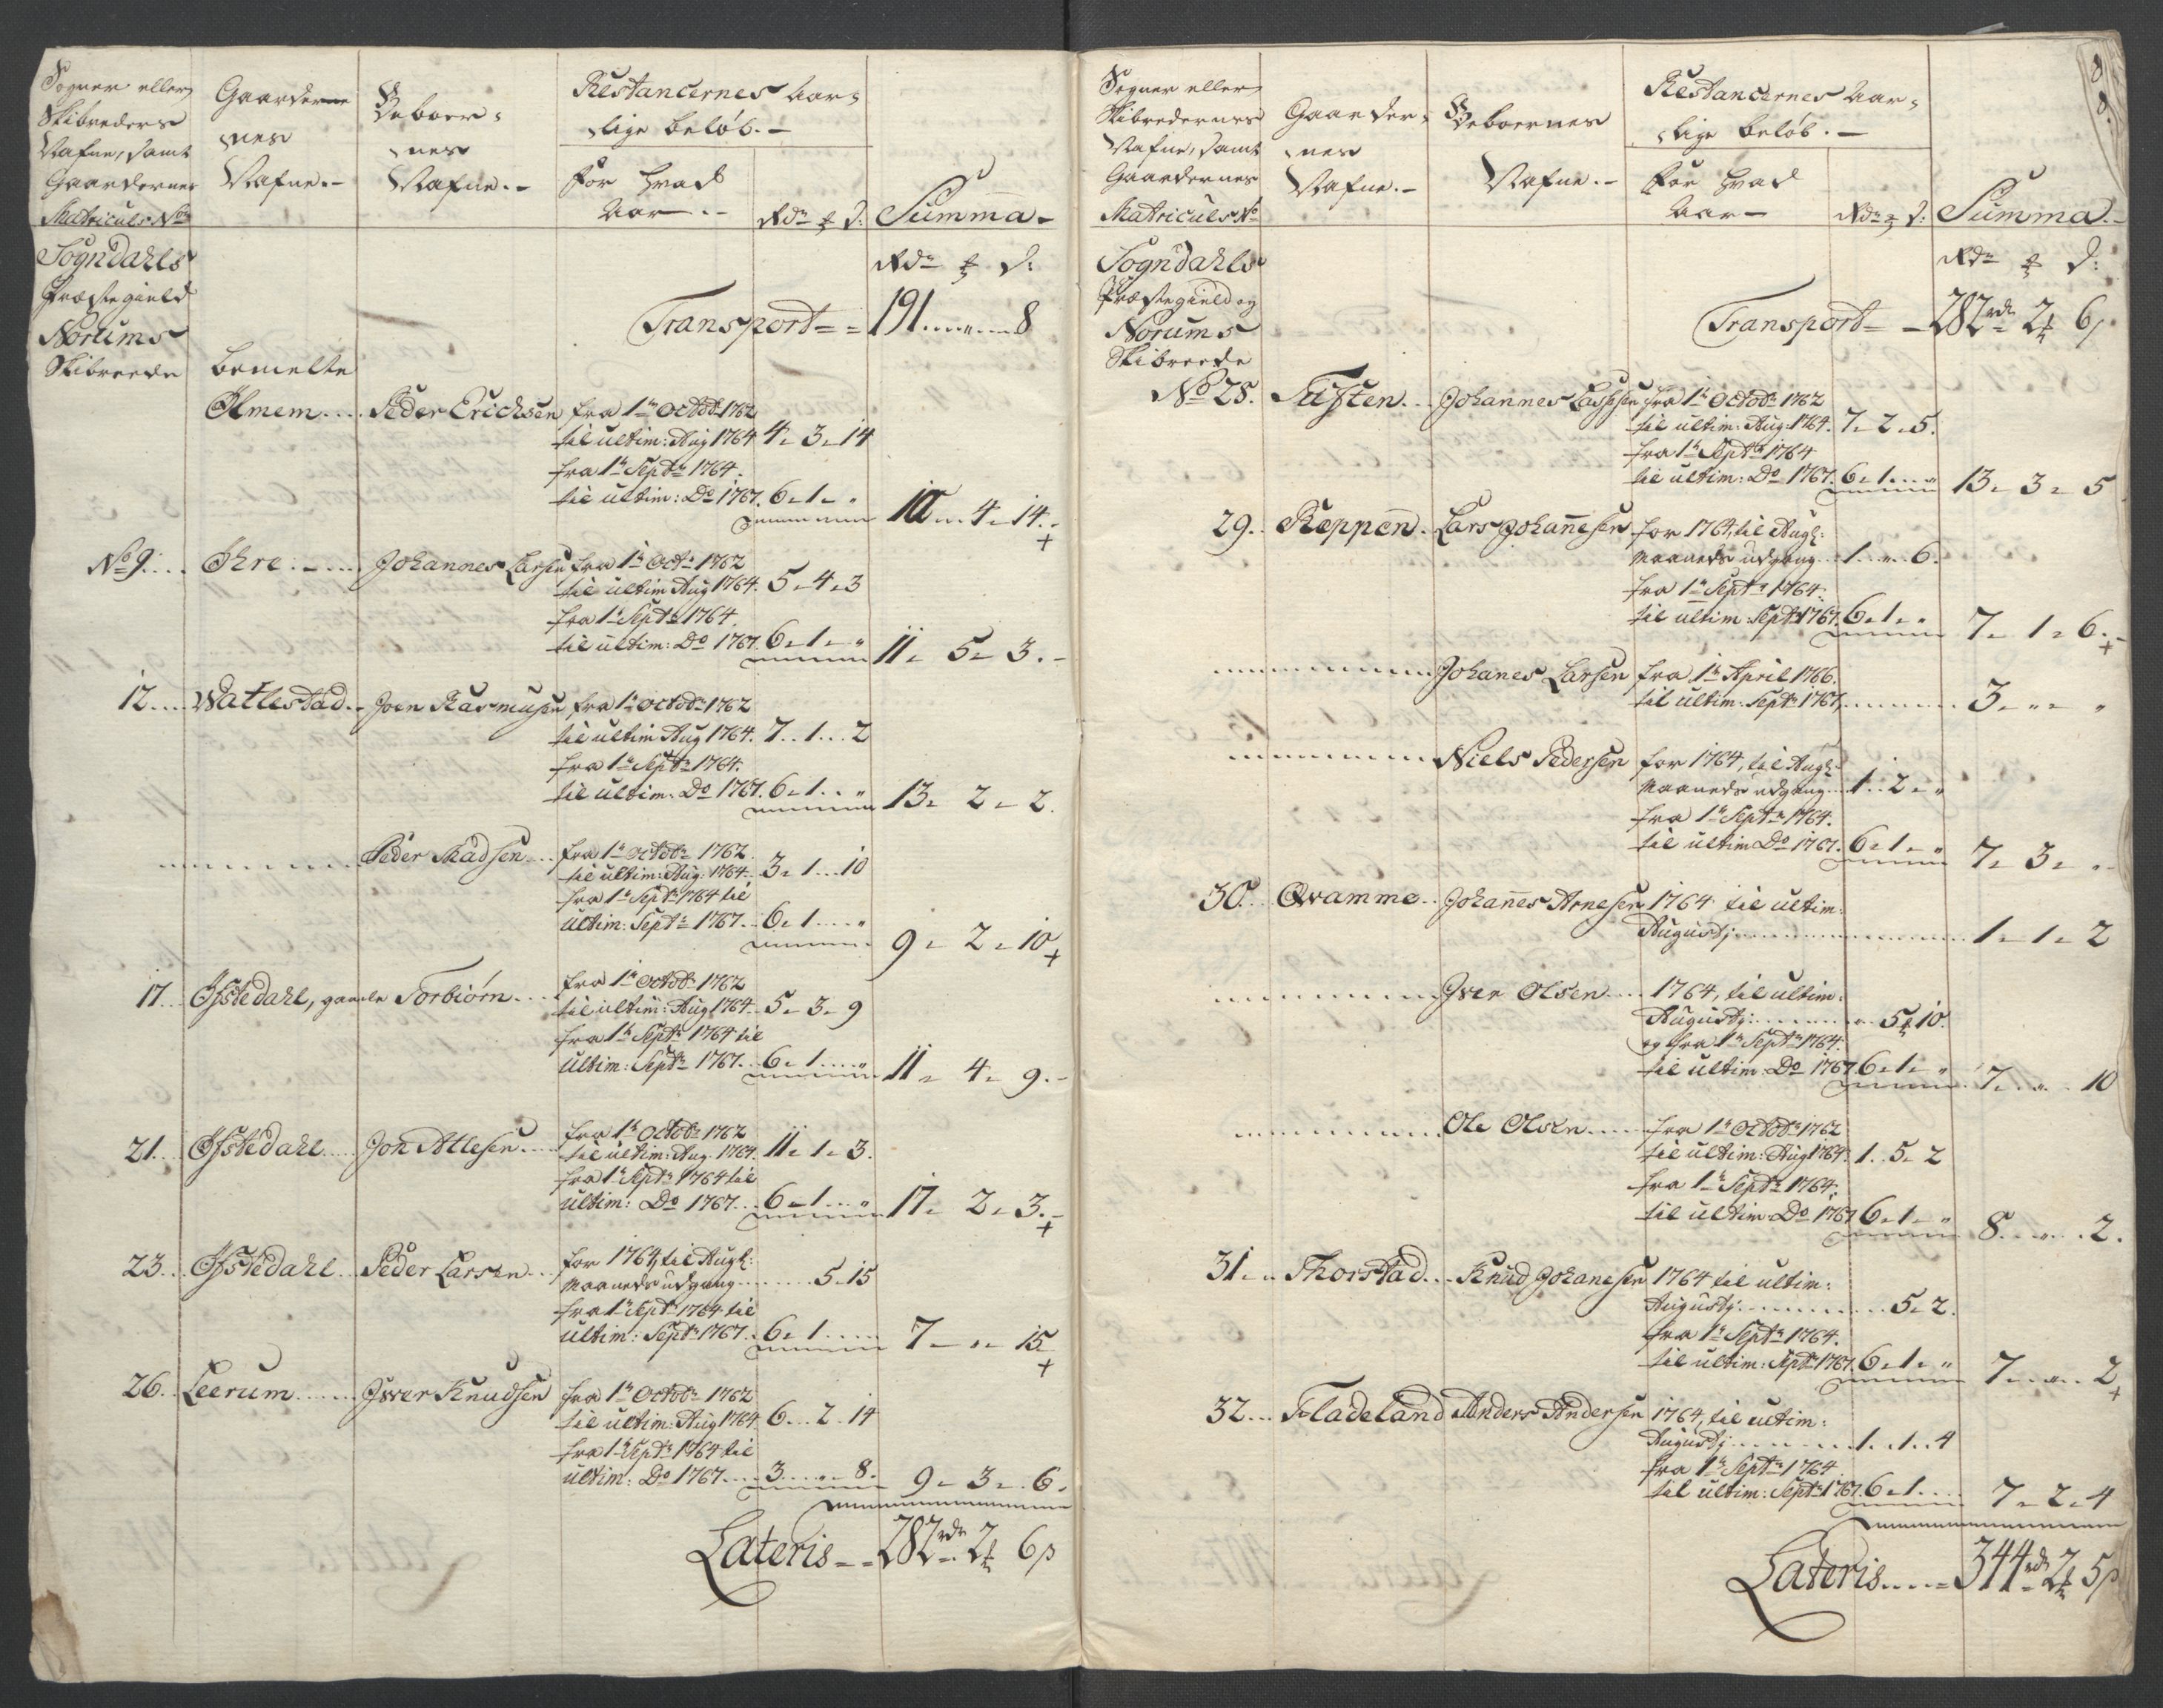 Sogner eller
Skibreders
Nafne, samt
Gaardernes
Matriculs No
Gaarderne
nes
Nafne.-
Beboer-
nes
Nafne.-
Restancernes Aar-
lige beløb.-
For hvad
Aar.-
Rdr ₰ s:
Summa-
Sogndahls
Præstegield
Norums
Skibreede
Rdr ₰ s:
Transport = = 191..."...8
bemelte
Ølmem.... Peder Erichsen fra 1te Octobr 1762
til ultim: Aug 1764 4 " 3 " 14
fra 1te Septr 1764.
til ultim: Do 1767. 6 " 1 " " 10 " 4 " 14.-
+
No 9.... Øhre.-.... Johannes Larsen fra 1te Octr 1762
til ultim Aug 1764. 5 " 4 " 3
fra 1te Septr 1764.
til ultim: Do 1767. 6 " 1 " " 11 " 5 " 3.-
12.... Watlestad.. Joen Rasmusen fra 1te Octobr 1762
til ultim Aug 1764. 7..1...2
fra 1te Septr 1764.
til ultim: Do 1767. 6 " 1.. " 13 " 2 " 2.
Peder Madsen... fra 1te Octobr 1762
til ultim: Aug: 1764.. 3 " 1...10
fra 1te Septr 1764 til
ultim: Septr 1767.. 6 " 1.... " 9 " 2 " 10
+
17... Øfstedahl, gamle Torbiørn.... fra 1te Octobr 1762
til ultim: Aug 1764.. 5 " 3 " 9
fra 1te Septr 1764 til
ultim: Septr 1767... 6 " 1.... " 11 " 4 " 9.-
21.... Øfstedahl.... Jon Atlesen.... fra 1te Octobr 1762
til ultim: Aug. 1764. 11 " 1 " 3.
fra 1te Septr 1764 til
ultim: Do 1767... 6 " 1.... " 17 " 2 " 3.-
+
23... Øfstedahl.. Peder Larsen... for 1764, til Aug:
Maaneds udgang......... 5 " 15
fra 1te Septr 1764 til
ultim: Septr 1767.. 6 " 1..... 7 " " " 15
+
26.. Leerum...... Iver Knudsen fra 1te Octobr 1762
til ultim: Aug 1764. 6... 2 " 14
fra 1te Septr 1764 til
ultim: Do 1767.... 3..."...8. 9 " 3 " 6.
Lateris = = 282 rdr 2 ₰ 6 s
8
8.
Sogner eller
Skibredernes
Nafne, samt
Gaardernes
Matriculs No
Gaarder-
nes
Nafne.-
Beboernes
Nafne.-
Restancernes Aar-
lige beløb.-
For hvad
Aar-
Rdr ₰ s:
Summa.-
Sogndahls
Præstegield og
Norums
Skibreede
Rdr ₰ s:
Transport = - 282 rdr 2 ₰ 6 s
No 28. Tusten... Johannes Lassesen fra 1te Octobr 1762
til ultim: Aug: 1764. 7 " 2 " 5.
fra 1te Septr 1764
til ultim: Do 1767. 6 " 1.... " 13 " 3 " 5
29.. Reppen. Lars Johannesen for 1764, til Aug:
Maaneds udgang... 1..."..6.
fra 1te Septr 1764.
til ultim: Septr 1767. 6 " 1 " " 7 " 1 " 6.-
+
Johanes Larsen fra 1te April 1766.
til ultim: Septr 1767......... 3 " " " "
Niels Pedersen for 1764, til Aug:
Maaneds udgang... 1..2 " "
fra 1te Septr 1764.
til ultim Do 1767. 6 " 1 " " 7 " 3 " ".-
30.. Qvamme.. Johannes Arnesen 1764 til ultim:
Augustj................ 1 " 1 " 2
Iver Olsen.... 1764, til ultim:
Augustj:......... " 5 ₰ 10.
og fra 1te Septr 1764.
til ultim: Do 1767 6 " 1 " " 7.. " .. 10
Ole Olsen..... fra 1te Octobr 1762
til ultim: Aug 1764. 1..5 " 2
fra 1te Septr 1764.
til ultim Do 1767 6 " 1 " " 8..."...2.
31... Thorstad... Knud Johanesen 1764 til ultim:
Augustj.............. 5 " 2.
fra 1te Septr 1764.
til ultim: Septr 1767. 6 " 1 " " 7.. " .. 2
+
32... Fladeland Anders Andersen 1764, til ultim:
Augustj.......... 1..1..4
fra 1te Septr 1764
til ultim: Septr 1767. 6 " 1.... 7 " 2 " 4
Lateris..... = 344 rdr 2 ₰ 5 s